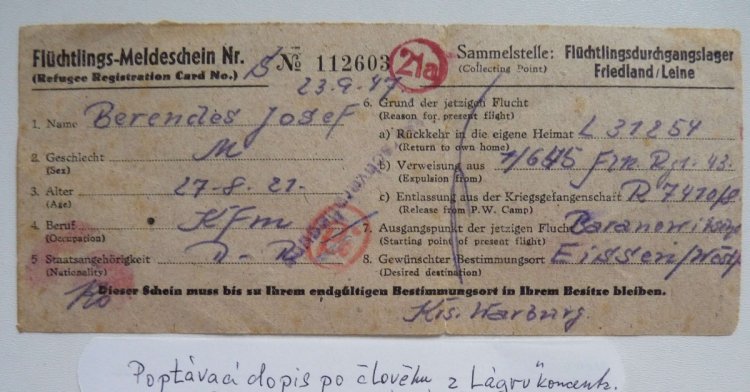 Flüchtlings-Meldeschein Nr.
(Refugee Registration Card No.)
№ 112603
21a
Sammelstelle: Flüchtlingsdurchgangslager
(Collecting Point) Friedland/Leine
23.9.47
1. Name Berendes Josef
2. Geschlecht M
(Sex)
3. Alter 27-8.21.
(Age)
4. Beruf Kfm
(Occupation)
5 Staatsangehörigkeit
(Nationality)
6. Grund der jetzigen Flucht
(Reason for present flight)
a) Rückkehr in die eigene Heimat L 31254
(Return to own home)
b) Verweisung aus
(Expulsion from)
c) Entlassung aus der Kriegsgefangenschaft
(Release from P.W. Camp)
7. Ausgangspunkt der jetzigen Flucht
(Starting point of present flight)
8. Gewünschter Bestimmungsort
(Desired destination)
Dieser Schein muss bis zu Ihrem endgültigen Bestimmungsort in Ihrem Besitze bleiben.
Krs. Warburg.
Poptávací dopis po člověku z Lágru koncentr.